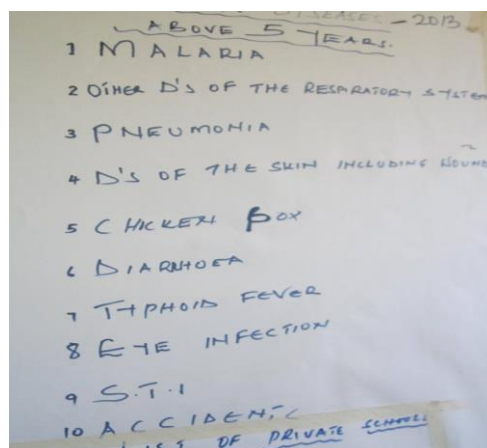 DISEASES - 2013
ABOVE 5 YEARS.
1 MALARIA
2 OTHER D'S OF THE RESPIRATORY SYSTEM
3 PNEUMONIA
4 D'S OF THE SKIN INCLUDING WOUND
5 CHICKEN BOX
6 DIARRHOEA
7 TYPHOID FEVER
8 EYE INFECTION
9 S.T.I
10 ACCIDENTS
OF PRIVATE SCHOOLS